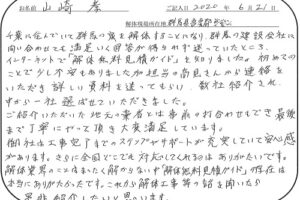 お名前 山崎 孝 ご記入日 2020年6月21日
解体現場所在地 群馬県吾妻郡
千葉に住んでいて群馬の家を解体することになり、群馬の建設会社に
問い合わせても満足いく回答が得られず迷っていたところ、
インターネットで「解体無料見積ガイド」を知りました。初めての
ことで少し不安もありましたが担当の高見さんから連絡を
いただき詳しい資料を送ってもらい、数社紹介され
中から一社選ばせていただきました。
ご紹介いただいた地元の業者とは事前の打合わせもでき最後
まで丁寧にやって頂き大変満足しています。
御社は工事完了までのステップやサポートが充実していて安心感
があります。さらに全国どこでも対応してくれるのはありがたいです。
解体業界のことはまったく解からないので「解体無料見積ガイド」の存在は
本当にありがたかったです。これから解体工事等の話を聞いたら
是非紹介したいと思います。